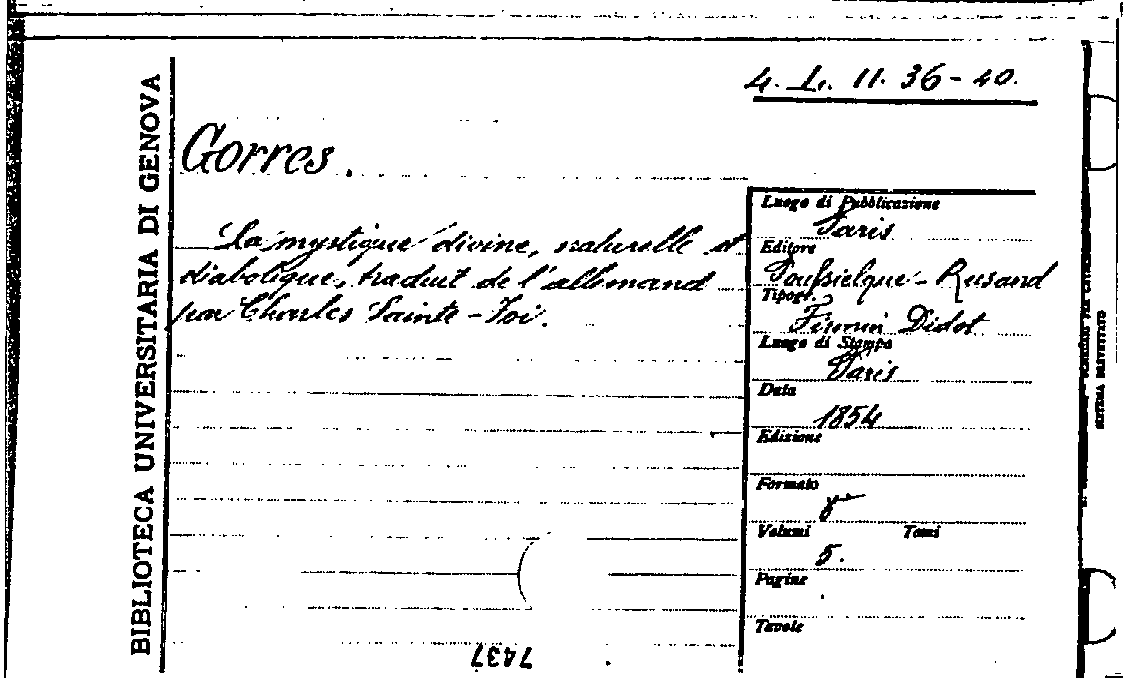 4. L. 11. 36-40.
BIBLIOTECA UNIVERSITARIA DI GENOVA
Gorres.
La mystique divine, naturelle et
diabolique, traduit de l'allemand
par Charles Sainte-Foi.
Luogo di Pubblicazione
Paris
Editore
Poussielque-Rusand
Tipogr.
Firmin Didot
Luogo di Stampa
Paris
Data
1854
Edizione
Formato
8°
Volumi Tomi
5.
Pagine
Tavole
7437
SISTEMA BREVETTATO